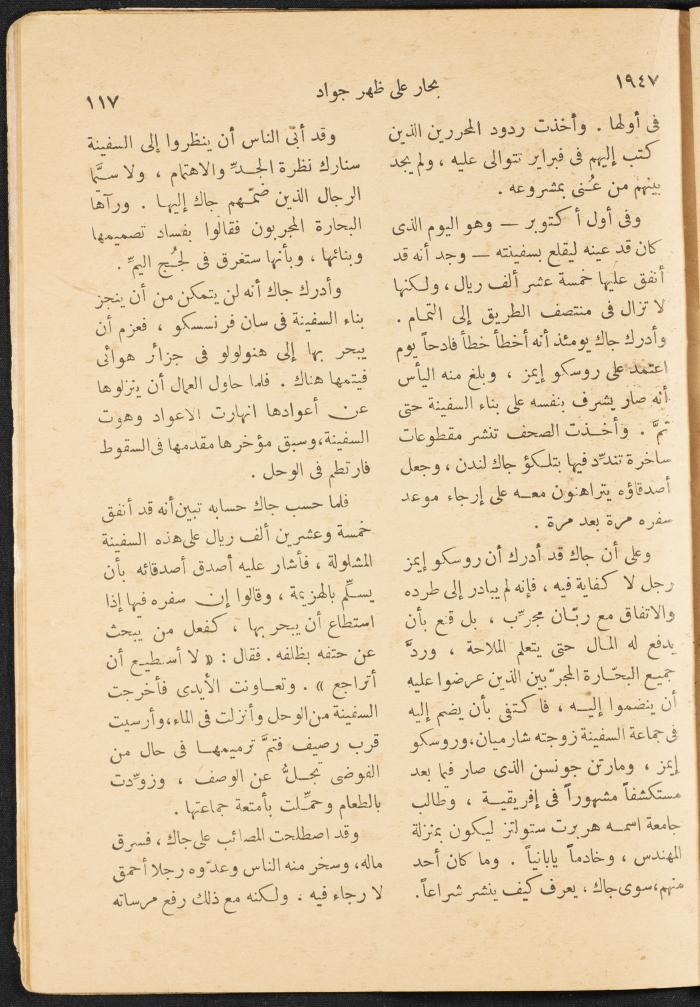 ١٩٤٧
بحار على ظهر جواد
١١٧
فى أولها . وأخذت ردود المحررين الذين
كتب إليهم فى فبراير تتوالى عليه ، ولم يجد
بينهم من عُنى بمشروعه .
وفى أول أكتوبر — وهو اليوم الذى
كان قد عينه ليقلع بسفينته — وجد أنه قد
أنفق عليها خمسة عشر ألف ريال ، ولكنها
لا تزال فى منتصف الطريق إلى التمام .
وأدرك جاك يومئذ أنه أخطأ خطأ فادحاً يوم
اعتمد على روسكو إيمز ، وبلغ منه اليأس
أنه صار يشرف بنفسه على بناء السفينة حتى
تمَّ . وأخذت الصحف تنشر مقطوعات
ساخرة تندِّد فيها بتلكؤ جاك لندن ، وجعل
أصدقاؤه يتراهنون معه على إرجاء موعد
سفره مرة بعد مرة .
وعلى أن جاك قد أدرك أن روسكو إيمز
رجل لا كفاية فيه ، فإنه لم يبادر إلى طرده
والاتفاق مع ربّان مجرِّب ، بل قنع بأن
يدفع له المال حتى يتعلم الملاحة ، وردَّ
جميع البحّارة المجرّبين الذين عرضوا عليه
أن ينضموا إليه ، فاكتفى بأن يضم إليه
فى جماعة السفينة زوجته شارميان،وروسكو
إيمز ، ومارتن جونسن الذى صار فيما بعد
مستكشفاً مشهوراً فى إفريقية ، وطالب
جامعة اسمه هربرت ستولتز ليكون بمنزلة
المهندس ، وخادماً يابانياً . وما كان أحد
منهم،سوى جاك ، يعرف كيف ينشر شراعاً.
وقد أبى الناس أن ينظروا إلى السفينة
سنارك نظرة الجدِّ والاهتمام ، ولا سيَّما
الرجال الذين ضمّهم جاك إليها . ورآها
البحارة المجربون فقالوا بفساد تصميمها
وبنائها ، وبأنها ستغرق فى لجُج اليمِّ .
وأدرك جاك أنه لن يتمكن من أن ينجز
بناء السفينة فى سان فرنسسكو ، فعزم أن
يبحر بها إلى هنولولو فى جزائر هوائى
فيتمها هناك . فلما حاول العمال أن ينزلوها
عن أعوادها انهارت الاعواد وهوت
السفينة،وسبق مؤخرها مقدمها فى السقوط
فارتطم فى الوحل .
فلما حسب جاك حسابه تبين أنه قد أنفق
خمسة وعشرين ألف ريال على هذه السفينة
المشلولة ، فأشار عليه أصدق أصدقائه بأن
يسلِّم بالهزيمة ، وقالوا إن سفره فيها إذا
استطاع أن يبحر بها ، كفعل من يبحث
عن حتفه بظلفه . فقال : « لا أستطيع أن
أتراجع » . وتعاونت الأيدى فأخرجت
السفينة من الوحل وأنزلت فى الماء،وأرسيت
قرب رصيف فتمَّ ترميمها فى حال من
الفوضى تجلُّ عن الوصف ، وزوِّدت
بالطعام وحمِّلت بأمتعة جماعتها .
وقد اصطلحت المصائب على جاك ، فسرق
ماله، وسخر منه الناس وعدّوه رجلا أحمق
لا رجاء فيه ، ولكنه مع ذلك رفع مرساته